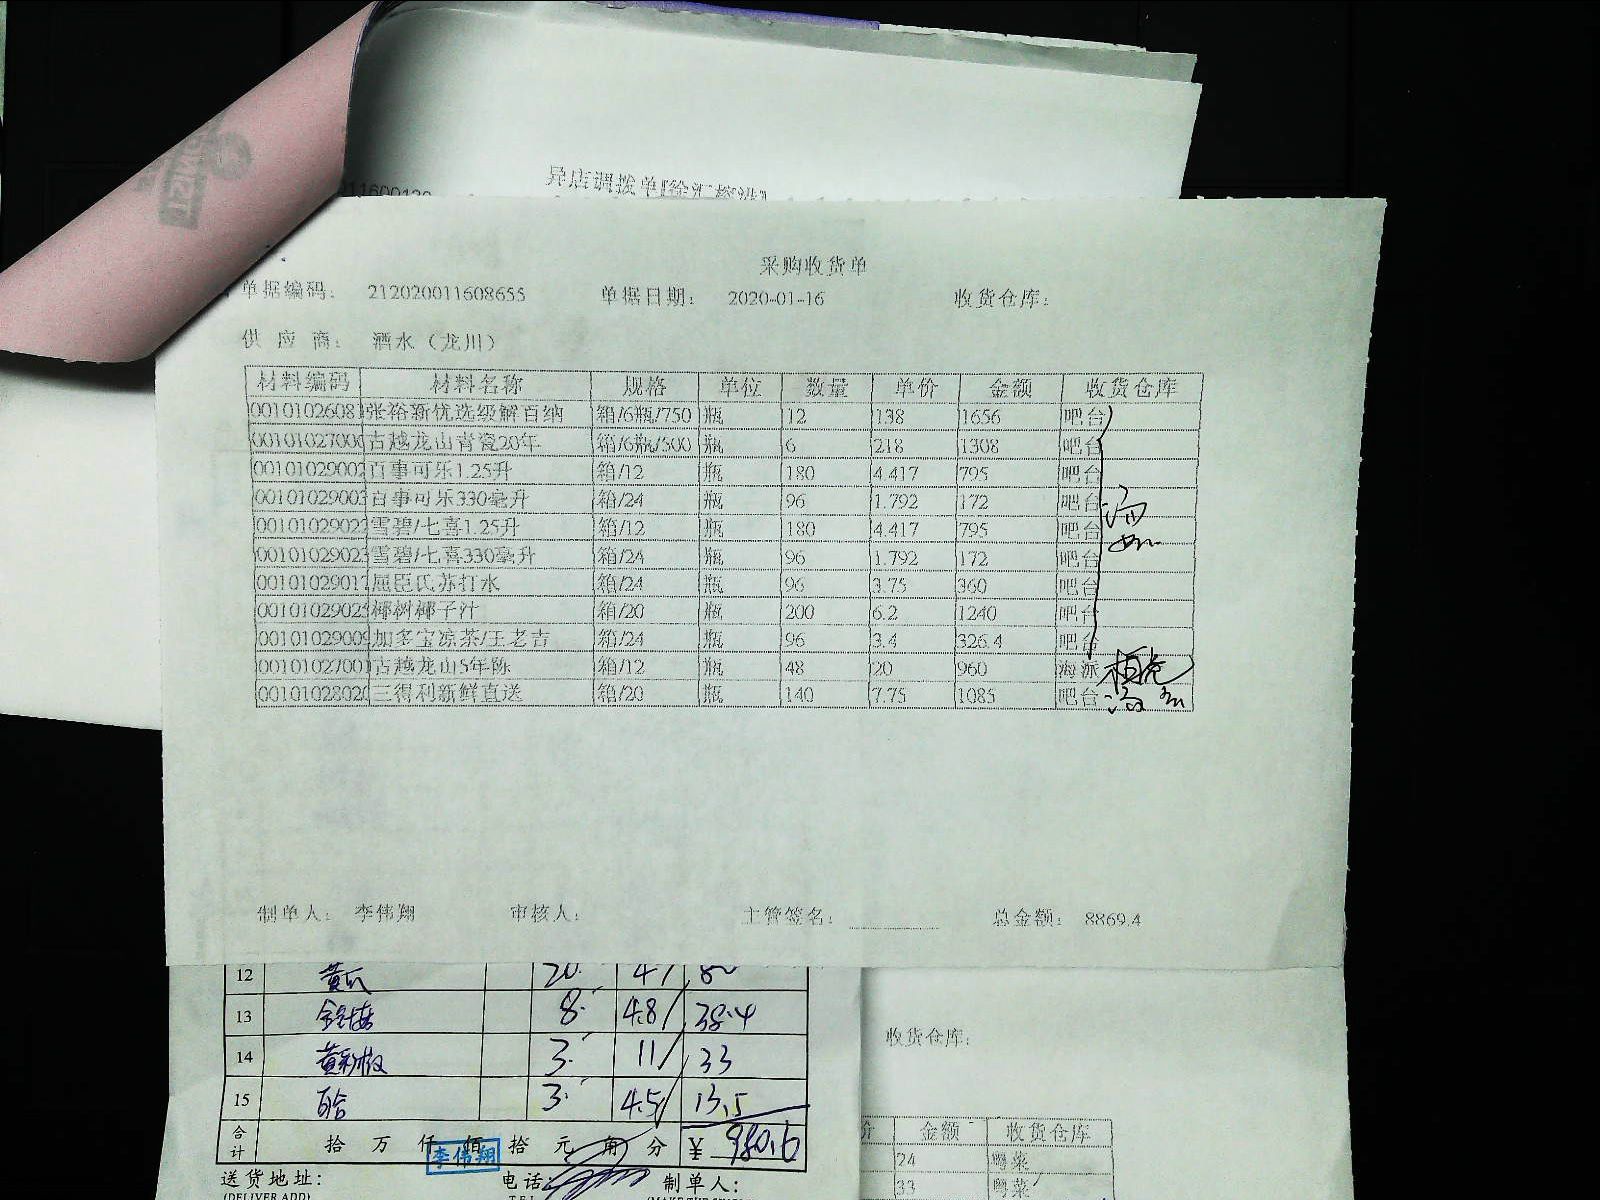 异店调拨单
采购收货单
单据编码： 212020011608655 单据日期： 2020-01-16 收货仓库：
供 应 商： 酒水（龙川）
材料编码 材料名称 规格 单位 数量 单价 金额 收货仓库
0010102608 张裕新优选级解百纳 箱/6瓶/750 瓶 12 138 1656 吧台
0010102700 古越龙山青瓷20年 箱/6瓶/500 瓶 6 218 1308 吧台
00101029002 百事可乐1.25升 箱/12 瓶 180 4.417 795 吧台
00101029003 百事可乐330毫升 箱/24 瓶 96 1.792 172 吧台
0010102902 雪碧/七喜1.25升 箱/12 瓶 180 4.417 795 吧台
0010102902 雪碧/七喜330毫升 箱/24 瓶 96 1.792 172 吧台
0010102901 屈臣氏苏打水 箱/24 瓶 96 3.75 360 吧台
0010102902 椰树椰子汁 箱/20 瓶 200 6.2 1240 吧台
00101029009 加多宝凉茶/王老吉 箱/24 瓶 96 3.4 326.4 吧台
00101027001 古越龙山5年陈 箱/12 瓶 48 20 960 海派
00101028020 三得利新鲜直送 箱/20 瓶 140 7.75 1085 吧台
制单人： 李伟翔 审核人： 主管签名： 总金额： 8869.4
12 黄瓜 20 4 80
13 8 4.8 38.4
14 黄彩椒 3 11 33
15 百合 3 4.5 13.5
合计 拾 万 仟 佰 拾 元 角 分 ¥ 980.6
李伟翔
送货地址： 电话： 制单人：
(DELIVER ADD)
收货仓库：
价 金额 收货仓库
24 粤菜
33 粤菜